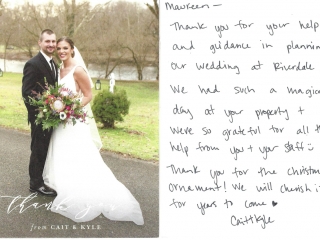 thank you
from CAIT & KYLE
Maureen —
Thank you for your help
and guidance in plannin
our wedding at Riverdale
We had such a magica
day at your property +
were so grateful for all th
help from you + your staff :)
Thank you for the christm
ornament! We will cherish i
for years to come ♥
Cait + Kyle